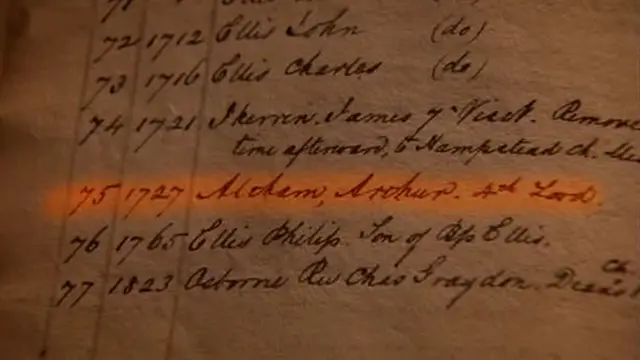 72 1712 Ellis John (do)
73 1716 Ellis Charles (do)
74 1721 Ikerrin. James 7th Visct. Remove
time afterward, to Hampstead Ch.
75 1727 Altham, Arthur. 4th Lord.
76 1765 Ellis Philip. Son of Bp Ellis.
ch.
77 1823 Osborne Rev Chas Graydon.